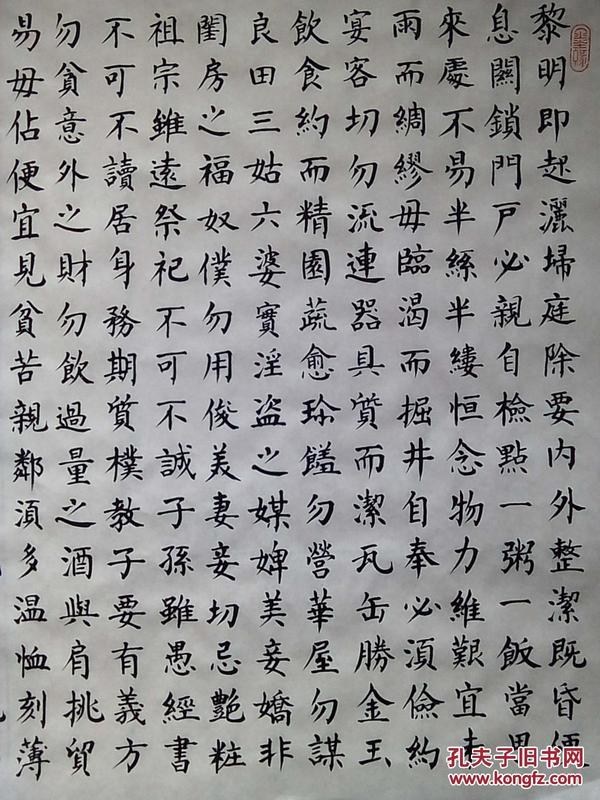 黎明即起灑埽庭除要內外整潔既昏便
息關鎖門戶必親自檢點一粥一飯當思
來處不易半絲半縷恒念物力維艱宜未
雨而綢繆毋臨渴而掘井自奉必須儉約
宴客切勿流連器具質而潔瓦缶勝金玉
飲食約而精園蔬愈珍饈勿營華屋勿謀
良田三姑六婆實淫盜之媒婢美妾嬌非
閨房之福奴僕勿用俊美妻妾切忌艷粧
祖宗雖遠祭祀不可不誠子孫雖愚經書
不可不讀居身務期質樸教子要有義方
勿貪意外之財勿飲過量之酒與肩挑貿
易毋佔便宜見貧苦親鄰須多温恤刻薄
孔夫子旧书网
www.kongfz.com